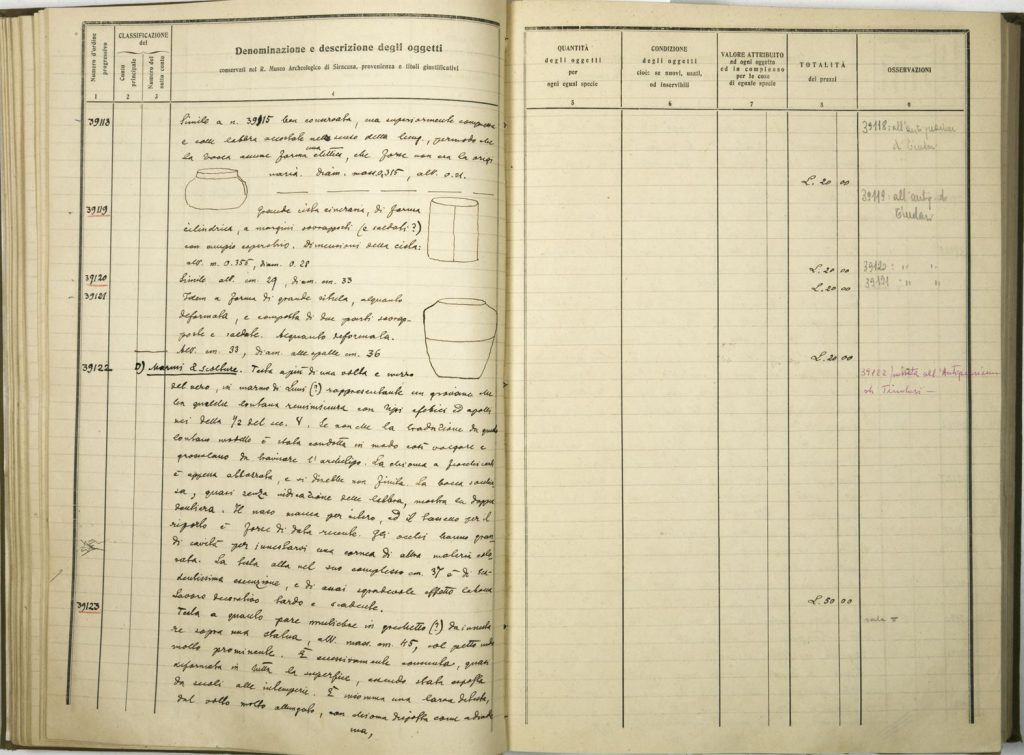 Numero d'ordine progressivo
CLASSIFICAZIONE del
Conto principale
Numero del sotto conto
Denominazione e descrizione degli oggetti
conservati nel R. Museo Archeologico di Siracusa, provenienza e titoli giustificativi
1 2 3 4
QUANTITÀ
degli oggetti
per
ogni egual specie
CONDIZIONE
degli oggetti
cioè: se nuovi, usati,
od inservibili
VALORE ATTRIBUITO
ad ogni oggetto
ed in complesso
per le cose
di eguale specie
TOTALITÀ
dei prezzi
OSSERVAZIONI
5 6 7 8 9
39118 Simile a n. 39115 ben conservata, ma superiormente
e colle labbra accostate nel senso della lung.
la bocca assume forma ellittica, che forse non era la origi
naria. Diam. mass. 0,315, alt. 0.21.
L. 20 00
39118: all'
di Tindari
39119 Grande cista cineraria, di forma
cilindrica, a margini sovrapposti (e saldati?)
con ampio coperchio. Dimensioni della cista:
alt. m. 0.355, diam. 0.28
L. 20 00
39119: all'antiq. di
Tindari
39120 Simile alt. cm. 29, diam. cm. 33
L. 20 00
39120: " "
39121 Idem a forma di grande situla, alquanto
deformata, e composta di due parti sovrap-
poste e saldate. Alquanto deformata.
Alt. cm. 33, diam. alle spalle cm. 36
L. 20 00
39121: " "
39122 D) Marmi e Sculture. Testa di una volta e mezzo
del vero, in marmo di Luni (?) rappresentante un giovane che
ha qualche lontana reminiscenza con tipi efebici ed apolli
nei della 1/2 del sec. V. Se non che la traduzione da questo
lontano modello è stata condotta in modo così volgare e
grossolano da travisare l'archetipo. La chioma a fiocchi
è appena abbozzata, e si direbbe non finita. La bocca
sa, quasi senza indicazione delle labbra, mostra la doppia
dentiera. Il naso manca per intero, ed il bassetto per il
riporto è forse di data recente. Gli occhi hanno gran
di cavità per innestarvi una cornea di altra materia colo
rata. La testa alta nel suo complesso cm. 37 è di sca
dentissima esecuzione, e di assai sgradevole effetto
Lavoro decorativo tardo e scadente.
L. 50 00
39122 all'Antiquarium
di Tindari —
39123 Testa a quanto pare muliebre in (?) da innesta
re sopra una statua, alt. mass. cm. 45, col petto
molto prominente. È eccessivamente consunta, quasi
deformata in tutta la superficie, essendo stata esposta
da secoli alle intemperie. È insomma una larva di testa,
dal volto molto allungato, con chioma disposta come a
ma,